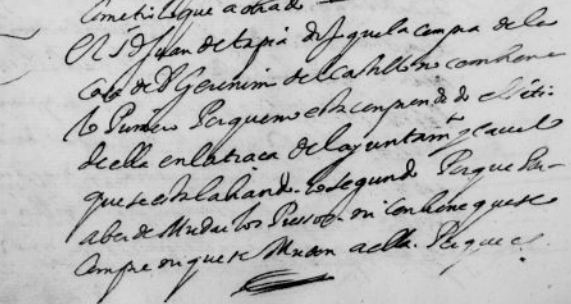 que a otra de
El Sr. D. Juan de tapia dijo que la compra de la
Casa de D. Geronimo del Castillo no combiene
lo Primero Porque no esta conprendido el siti
de ella en la traça del ayuntamto y carzel
que se esta labando. lo segundo Porque
aber de Mudar los Pressos. ni conbiene que se
Compre ni que se Muden a ella. Porque es